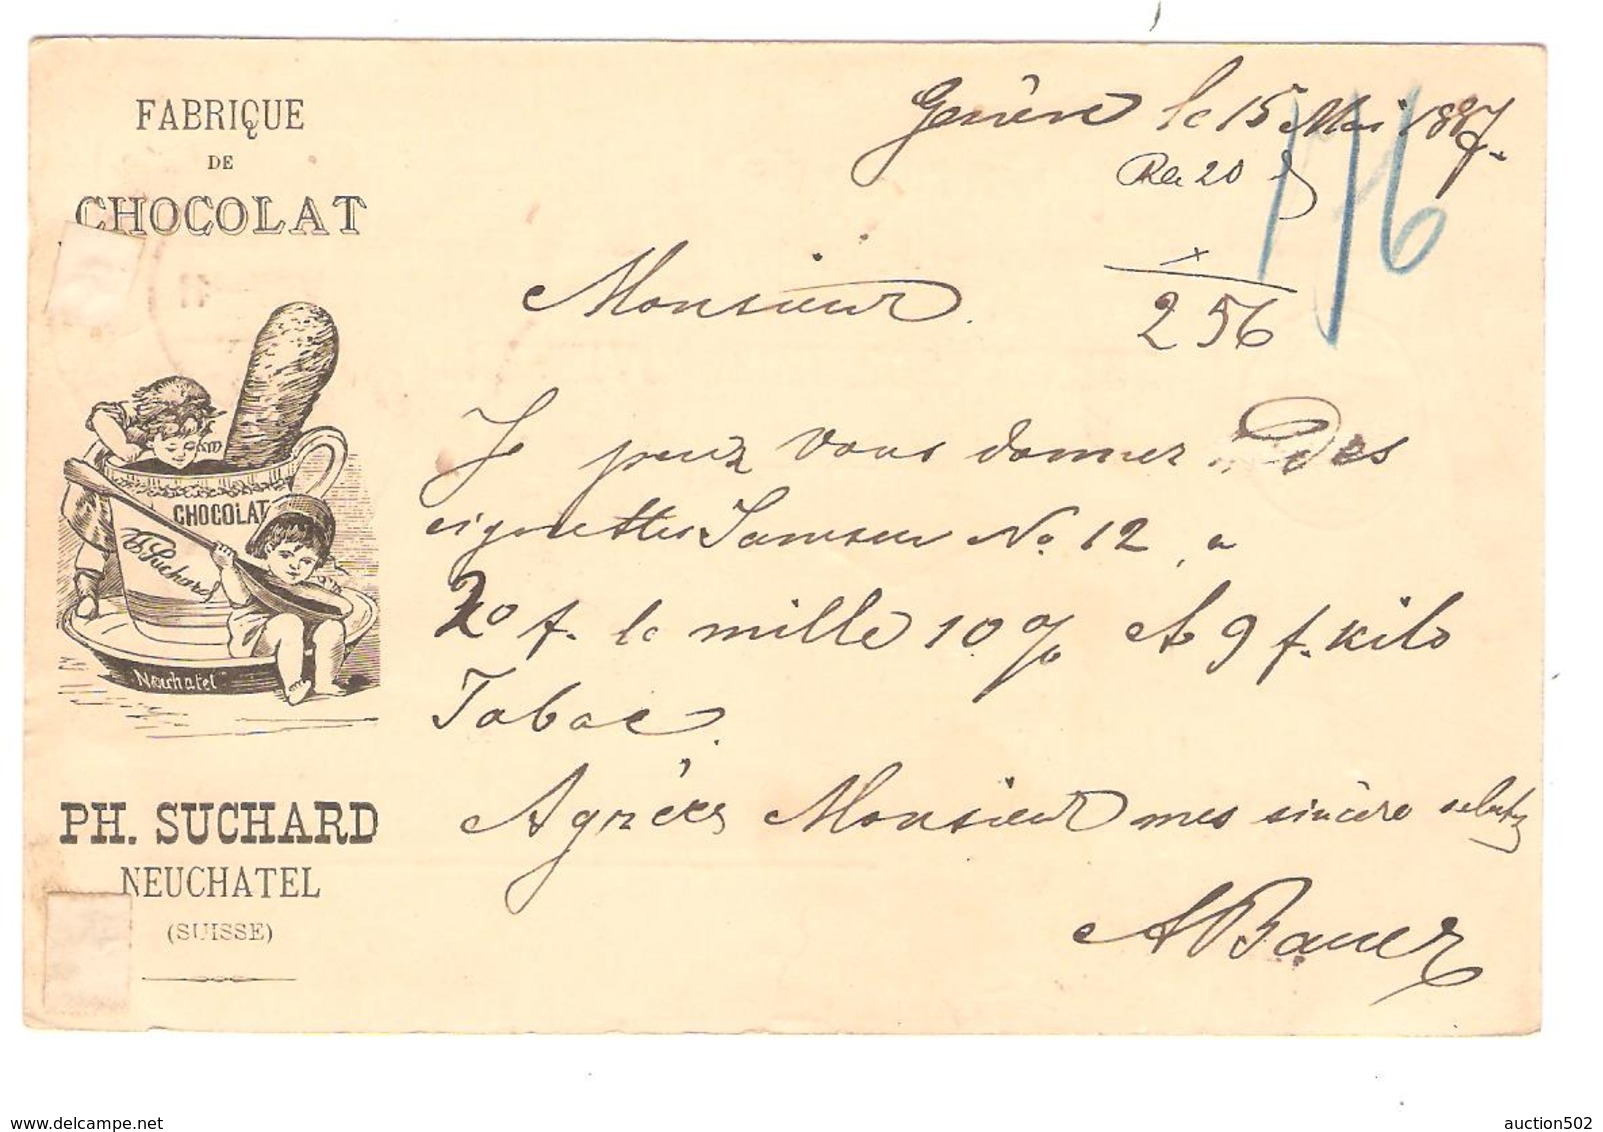 FABRIQUE
DE
CHOCOLAT
CHOCOLAT
Ph Suchard
Neuchatel
PH. SUCHARD
NEUCHATEL
(SUISSE)
Genève le 15 Mai 1887.
20
256
Monsieur.
Je peux vous donner des
cigarettes No. 12 a
20 f. le mille 10% 9 f. kilo
Tabac.
Agréez Monsieur mes sincère
A Bauer
delcampe.net
auction502